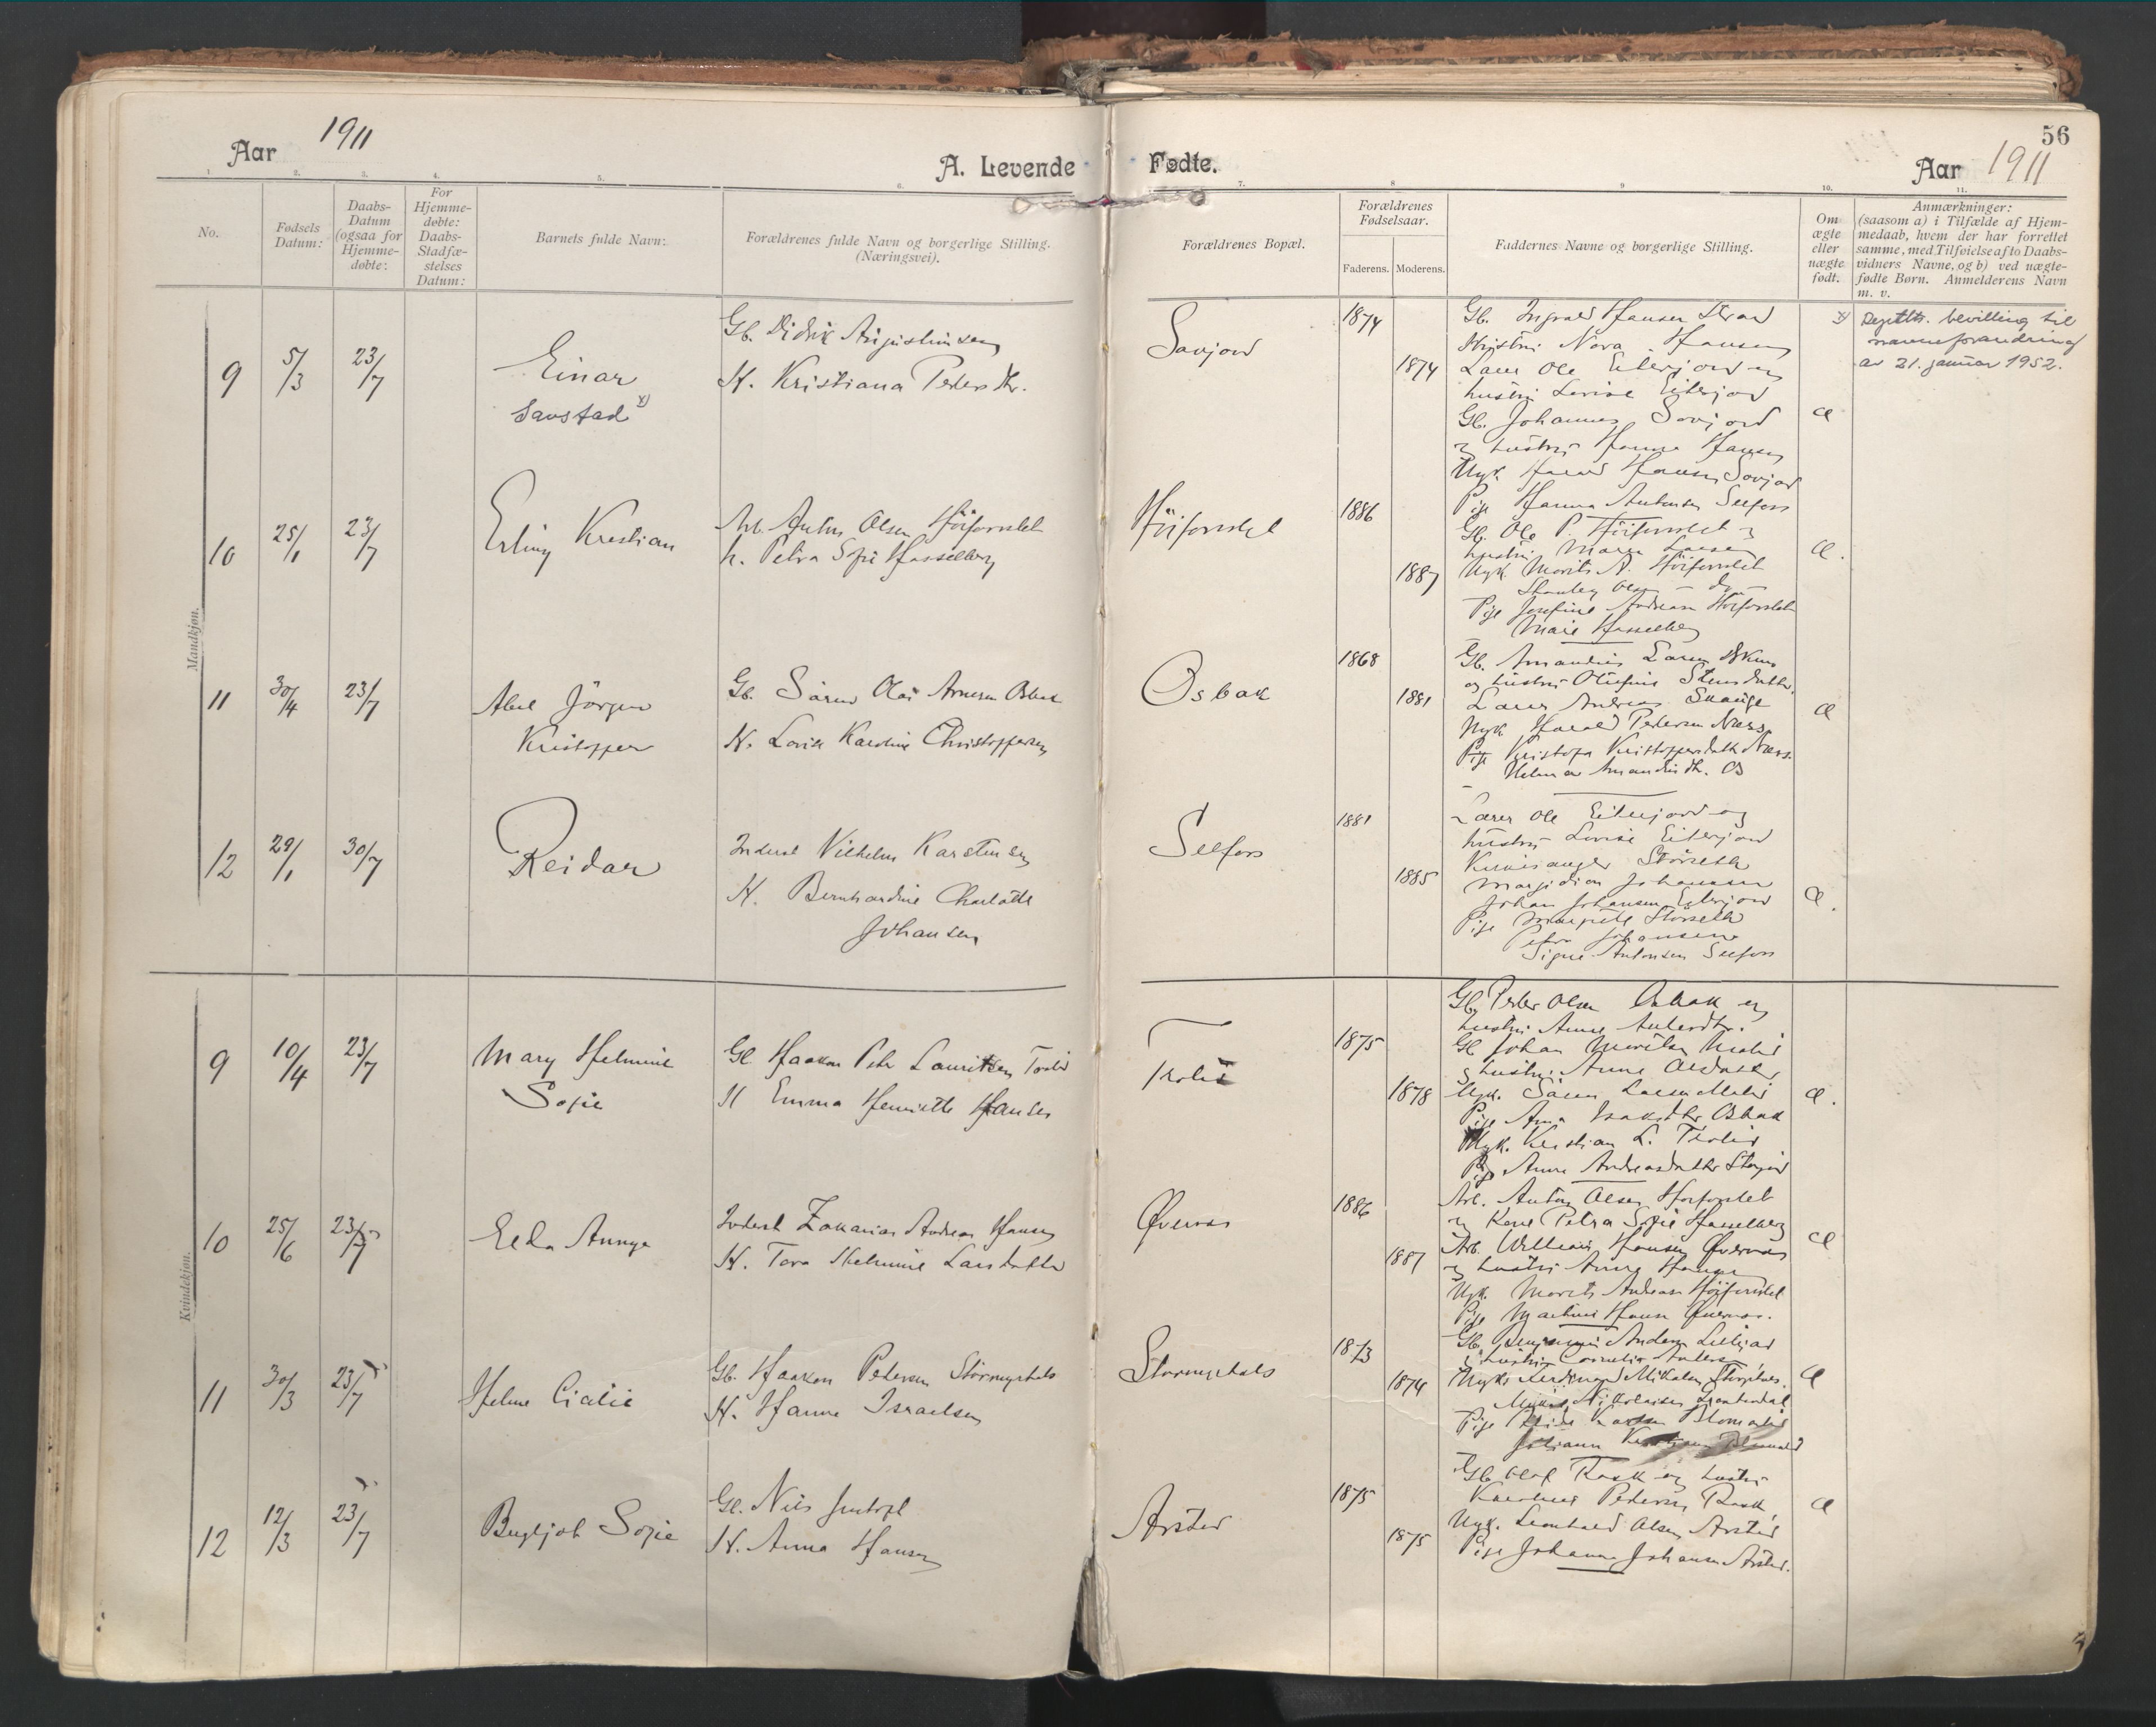 56
Aar 1911
A. Levende Fødte.
Aar 1911
1. 2. 3. 4. 5. 6. 7. 8 9 10. 11.
No.
Fødsels Datum:
Daabs-Datum (ogsaa for Hjemme-døbte:
For Hjemme-døbte: Daabs-Stadfæ-stelses Datum:
Barnets fulde Navn:
Forældrenes fulde Navn og borgerlige Stilling. (Næringsvei).
Forældrenes Bopæl.
Forældrenes Fødselsaar.
Faderens. Moderens.
Faddernes Navne og borgerlige Stilling.
Om ægte eller uægte født.
Anmærkninger:
(saasom a) i Tilfælde af Hjem-
medaab, hvem der har forrettet
samme, med Tilføielse af to Daabs-
vidners Navne, og b) ved uægte-
fødte Børn. Anmelderens Navn
m. v.
Mandkjøn.
9 5/3 23/7
Einar
Savstad x)
Gb. Didrik Augustinsen
H. Kristiana Pedersdtr.
Savjord
1874
1874
Gb. Ingvald Hansen
Hustru Nora Hansen
Lærer Ole Eiterjord og
hustru Lovise Eiterjord
Gb. Johannes Savjord
og hustru Hanna Hansen
Ungk. Harald Hansen Savjord
Pige Hanna Antonsen Selfors
æ
x) Deptts. bevilling til
navneforandring
av 21. januar 1952.
10 25/1 23/7
Erling Kristian
Arb. Anton Olsen Høiforsslet
h. Petra Sofie Hasselberg
Høiforsslet
1886
1887
Gb. Ole P. Høiforsslet og
hustru Maren Larsen
Ungk. Morits A. Høiforsslet
Stanley Olsen — do —
Pige Josefine Andreasen Høiforsslet
Marie Hasselberg
æ.
11 30/4 23/7
Abel Jörgen
Kristoffer
Gb. Sören Olai Arnesen Osbak
H. Lovise Karoline Christoffersen
Osbak
1868
1881
Gb. Amandus Larsen
og hustru Olufine Stensdatter
Lærer Andreas Skauge
Ungk Harald Pedersen Næss
Pige Kristofa Kristoffersdatter Næss.
Helma Amandusdtr. Os
æ
12 29/1 30/7
Reidar
Inderst Vilhelm Karstensen
H. Bernhardine Charlotte
Johansen
Selfors
1881
1885
Lærer Ole Eiterjord og
hustru Lovise Eiterjord
Kirkesanger Störseth
Johan Johansen Eiterjord
Pige Margrete Störseth
Petra Johansen
Signe Antonsen Selfors
æ.
Kvindekjøn.
9 10/4 23/7
Mary Helmine
Sofie
Gb Haakon Peter Lauritsen Trolid
H Emma Henriette Hansen
Trolid
1875
1878
Gb. Peder Olsen Osbak og
hustru Anne Andersdtr.
Gb Johan Moritsen Molid
og hustru Anne Olsdatter
Ungk. Sören Larsen Molid
Pige Anna Isaksdtr Osbak
Ungk. Kristian L. Trolid
Pige Anne Andreasdatter Storjord
æ.
10 25/6 23/7
Elda Aunye
Inderst Zakarias Andreas Hansen
H. Tora Helmine Larsdatter
Øvernes
1886
1887
Arb. Anton Olsen Høiforsslet
og Kone Petra Sofie Hasselberg
Arb. William Hansen Øvernes
og hustru Anna Hansen
Ungk. Morits Andreas Høiforsslet
Pige Martine Hansen Øvernes.
æ
11 30/3 23/7
Helene Cicilie
Gb. Haakon Petersen Stormyrbak
H. Hanna Israelsen
Stormyrbak
1873
1874
Gb. Benjamin Andersen
hustru Cornelia Andersen
Ungk. Ferdinand Mikalsen
Nikolaisen
Pige
Johanna
æ
12 12/3 23/7
Bergljot Sofie
Gb. Nils Jentoft
H. Anna Hansen
Arstad
1875
1875
Gb. Olaf Rask og hustru
Karoline Pedersen Rask
Ungk. Leonhard Olsen Arstad
Pige Johanna Johansen Arstad.
æ